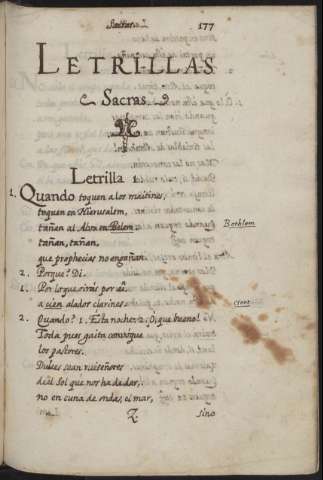 177
LETRILLAS
Sacras
Letrilla 1.
1. Quando toquen a los maitines,
toquen en Hierusalem,
tañan al Alva en Belen Bethlem
tañan, tañan,
que prophecias no engañan.
2. Porque? Di.
1. Por lo que oirás por aí
a cien alados clarines. cient
2. Quando? 1. Esta noche. 2. O, que bueno!
Toda pues gaita convoque
los pastores.
Dulces sean ruiseñores
del Sol que nos ha de dar,
no en cuna de ondas, el mar,
Z sino